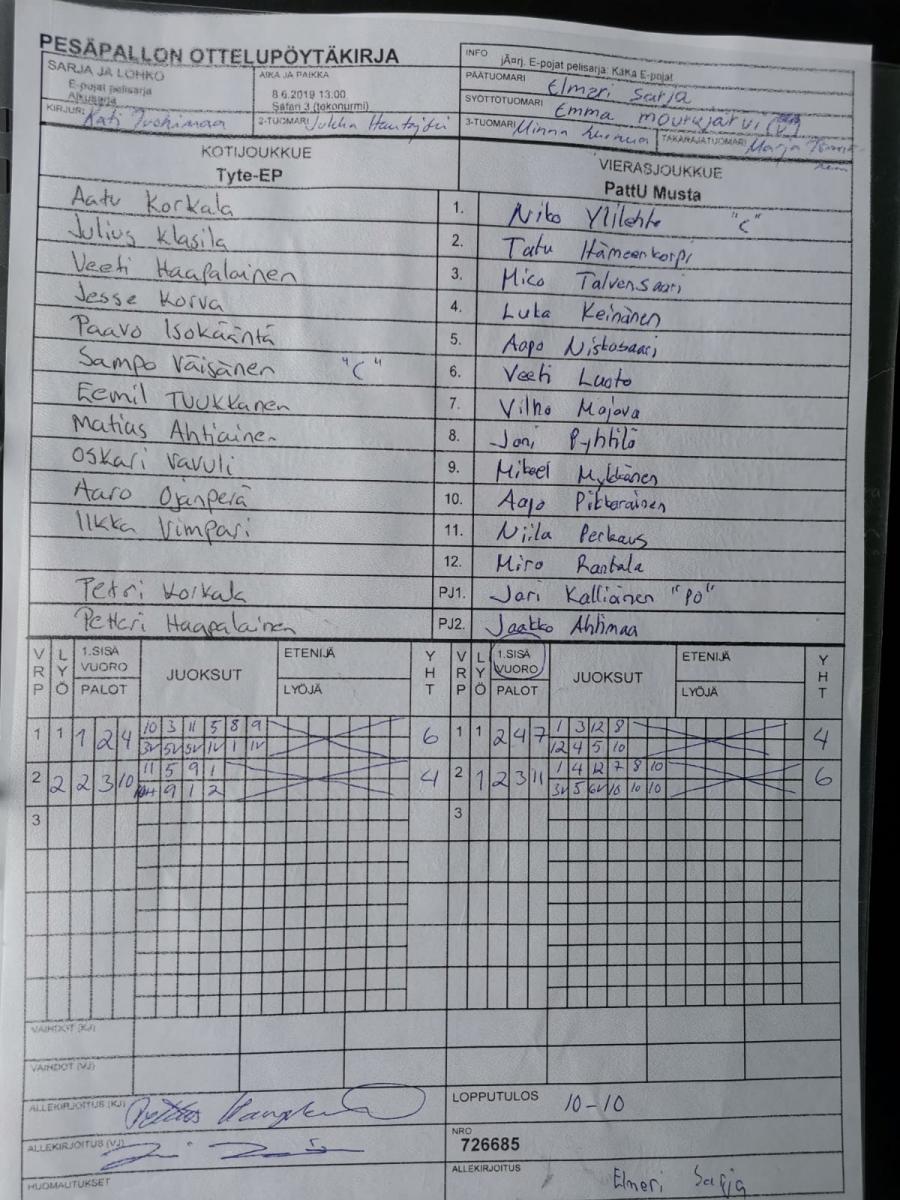 PESÄPALLON OTTELUPÖYTÄKIRJA
SARJA JA LOHKO
E-pojat pelisarja
Alkusarja
AIKA JA PAIKKA
8.6.2019 13.00
Safari 3 (tekonurmi)
INFO
jÄ¤rj. E-pojat pelisarja: KaKa E-pojat
PÄÄTUOMARI Elmeri Sarja
SYÖTTÖTUOMARI Emma
KIRJURI Kati
2-TUOMARI Jukka
3-TUOMARI Minna
TAKARAJATUOMARI Marja
KOTIJOUKKUE
Tyte-EP
VIERASJOUKKUE
PattU Musta
Aatu Korkala 1. Niko Ylilehto "C"
Julius Klasila 2. Tatu Hämeenkorpi
Veeti Haapalainen 3. Mico Talvensaari
Jesse Korva 4. Luka Keinänen
Paavo Isokääntä 5. Aapo Niskasaari
Sampo Väisänen "C" 6. Veeti Luoto
Eemil Tuukkanen 7. Vilho Majava
Matias Ahtiainen 8. Joni Pyhtilä
Oskari Vavuli 9. Mikael Mykkänen
Aaro Ojanperä 10. Aapo Pikkarainen
Ilkka Vimpari 11. Niila Perkaus
12. Miro Rantala
Petri Korkala PJ1. Jari Kalliänen "PO"
Petteri Haapalainen PJ2. Jaakko Ahtimaa
VRP LYÖ 1.SISÄ VUORO PALOT JUOKSUT ETENIJÄ LYÖJÄ YHT VRP LYÖ 1.SISÄ VUORO PALOT JUOKSUT ETENIJÄ LYÖJÄ YHT
1 1 1 2 4 10 3 11 5 8 9 6 1 1 2 4 7 1 3 12 8 4
3V 5V 5V 1V 1 1V 12 4 5 10
2 2 2 3 10 11 5 9 1 4 2 1 2 3 11 1 4 12 7 8 10 6
9 1 2 3V 5 6V 10 10 10
3 3
VAIHDOT (KJ)
VAIHDOT (VJ)
ALLEKIRJOITUS (KJ)
LOPPUTULOS 10-10
ALLEKIRJOITUS (VJ)
NRO
726685
HUOMAUTUKSET
ALLEKIRJOITUS Elmeri Sarja